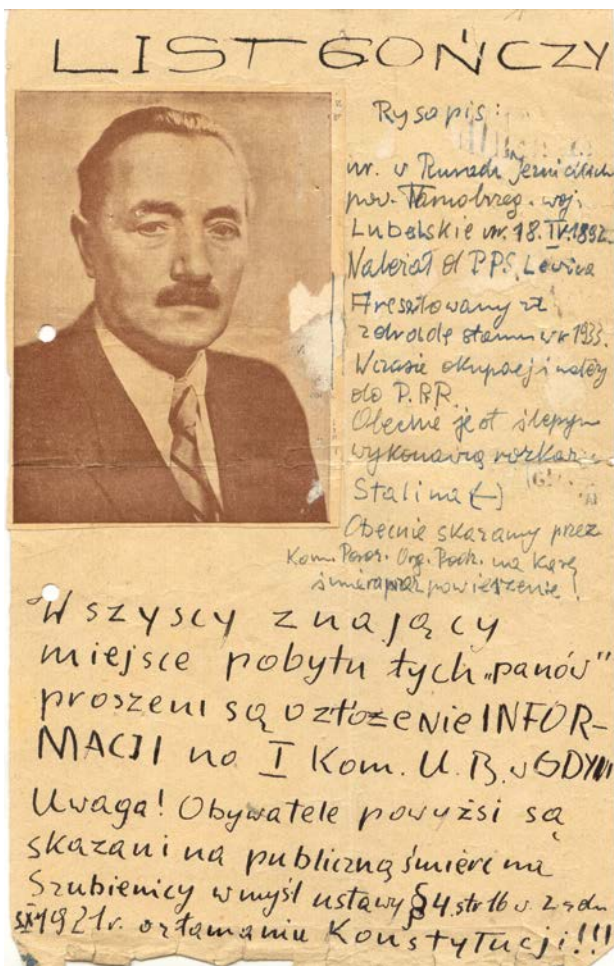 LIST GOŃCZY
Rysopis:
ur. w Rurach Jezuickich
pow. Tarnobrzeg. woj.
Lubelskie ur. 18.IV.1892.
Należał d PPS, Lewica
Aresztowany za
zdradę stanu w r 1933.
W czasie okupacji należy
do P.P.R.
Obecnie jest ślepym
wykonawcą rozkazów
Stalina (-)
Obecnie skazany przez
Kom. Poror. Org. Podz. na karę
śmierci przez powieszenie!
Wszyscy znający
miejsce pobytu tych „panów"
proszeni są o złożenie INFOR-
MACJI na I Kom. U.B. w GDYNI
Uwaga! Obywatele powyżsi są
skazani na publiczną śmierć na
Szubienicy w myśl ustawy § 4. str 16 u. z dn
1921r. o złamaniu Konstytucji!!!